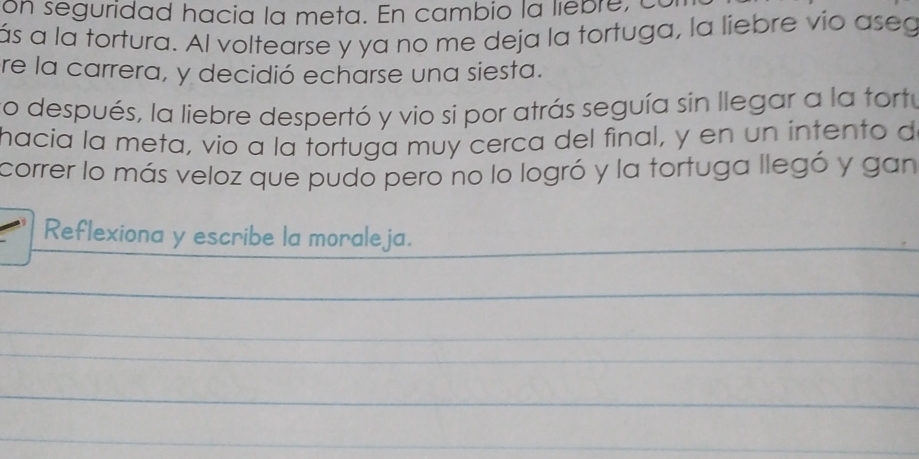 ón seguridad hacia la meta. En cambio la liebre,
ás a la tortura. Al voltearse y ya no me deja la tortuga, la liebre vio aseg
re la carrera, y decidió echarse una siesta.
o después, la liebre despertó y vio si por atrás seguía sin llegar a la tortu
hacia la meta, vio a la tortuga muy cerca del final, y en un intento d
correr lo más veloz que pudo pero no lo logró y la tortuga llegó y gan
Reflexiona y escribe la moraleja.